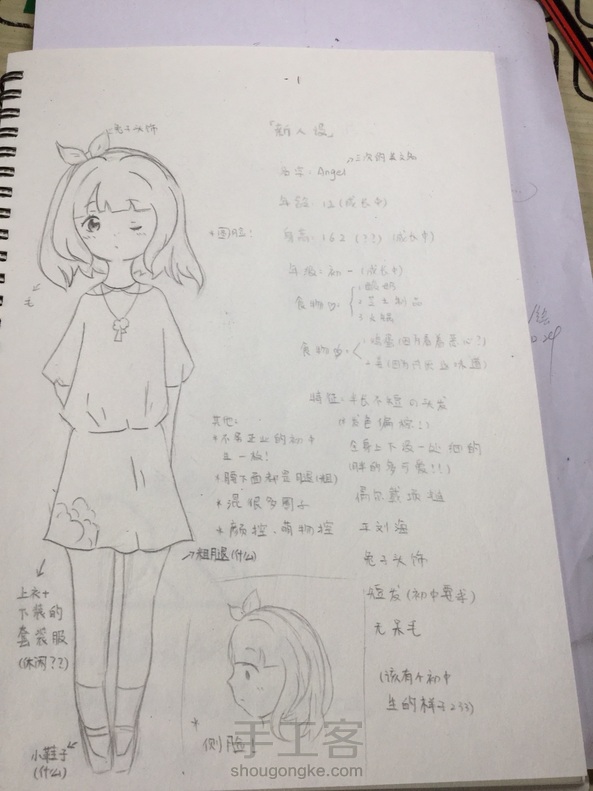 - 1
兔子头饰
「新人设」
名字：Angel
→三次的英文名
年龄：12(成长中)
*圆脸！
身高：162 (??) (成长中)
年级：初一(成长中)
食物
奶
芝士制品
火锅
食物
毛
特征：半长不短の头发
(发色偏棕!)
全身上下没一处细的
(胖的多可爱!!)
偶尔戴
平刘海
兔子头饰
短发(初中要求)
无呆毛
(该有个初中
生的样子233)
其他：
*不务正业的初中
生一枚!
*腰下面都是腿(粗)
*混很多圈子
*颜控、萌物控
→粗腿(什么)
上衣+
下装的
套装服
(休闲??)
小鞋子
(什么)
*
侧脸!
手工客
shougongke.com